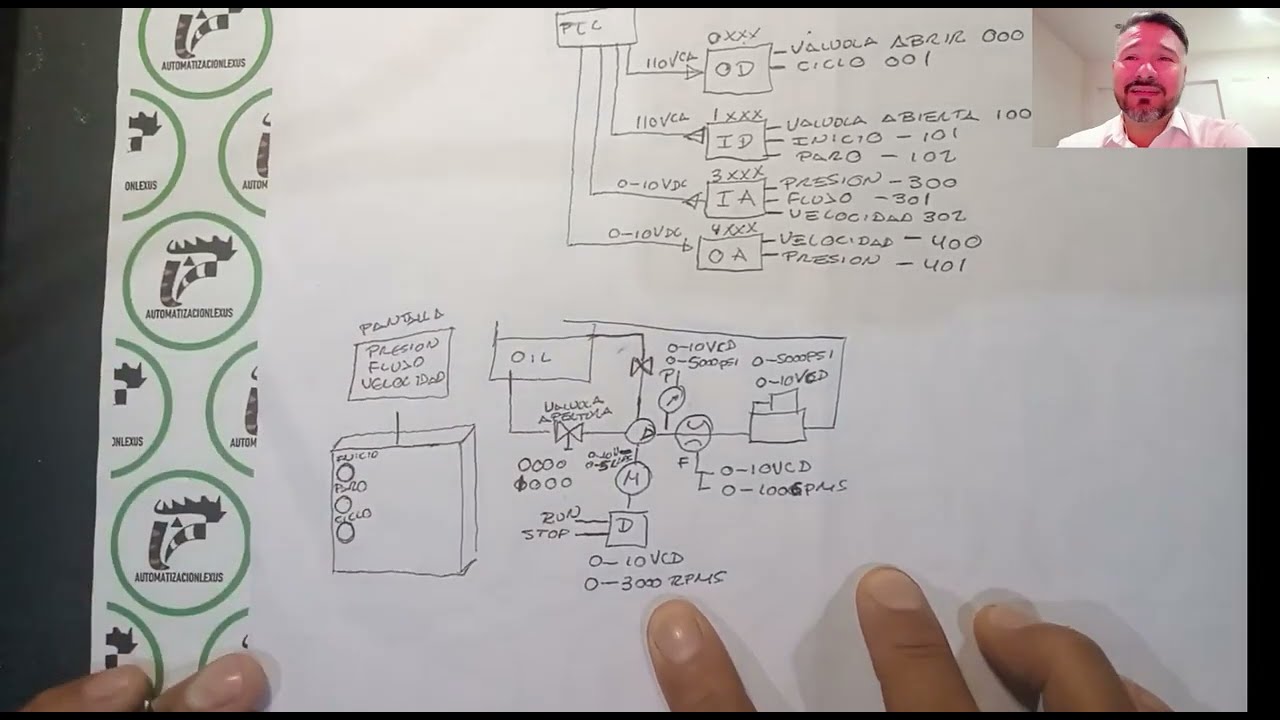 AUTOMATIZACIONLEXUS
ONLEXUS
AUTOM
AUTOMATIZACIONLEXUS
ONLEXUS
AUTOM
AUTOMATIZACIONLEXUS
PLC
110VCA
0XXX
OD
VALVULA ABRIR 000
CICLO 001
110VCA
1XXX
ID
VALVULA ABIERTA 100
INICIO - 101
PARO - 102
0-10VDC
3XXX
IA
PRESION - 300
FLUJO - 301
VELOCIDAD 302
0-10VDC
4XXX
OA
VELOCIDAD - 400
PRESION - 401
PANTALLA
PRESION
FLUJO
VELOCIDAD
INICIO
PARO
CICLO
OIL
VALVULA
APERTURA
0000
0-10VCD
0-5000PSI
P
F
0-10VCD
0-100GPMS
0-5000PSI
0-10VCD
M
RUN
STOP
D
0-10VCD
0-3000 RPMS